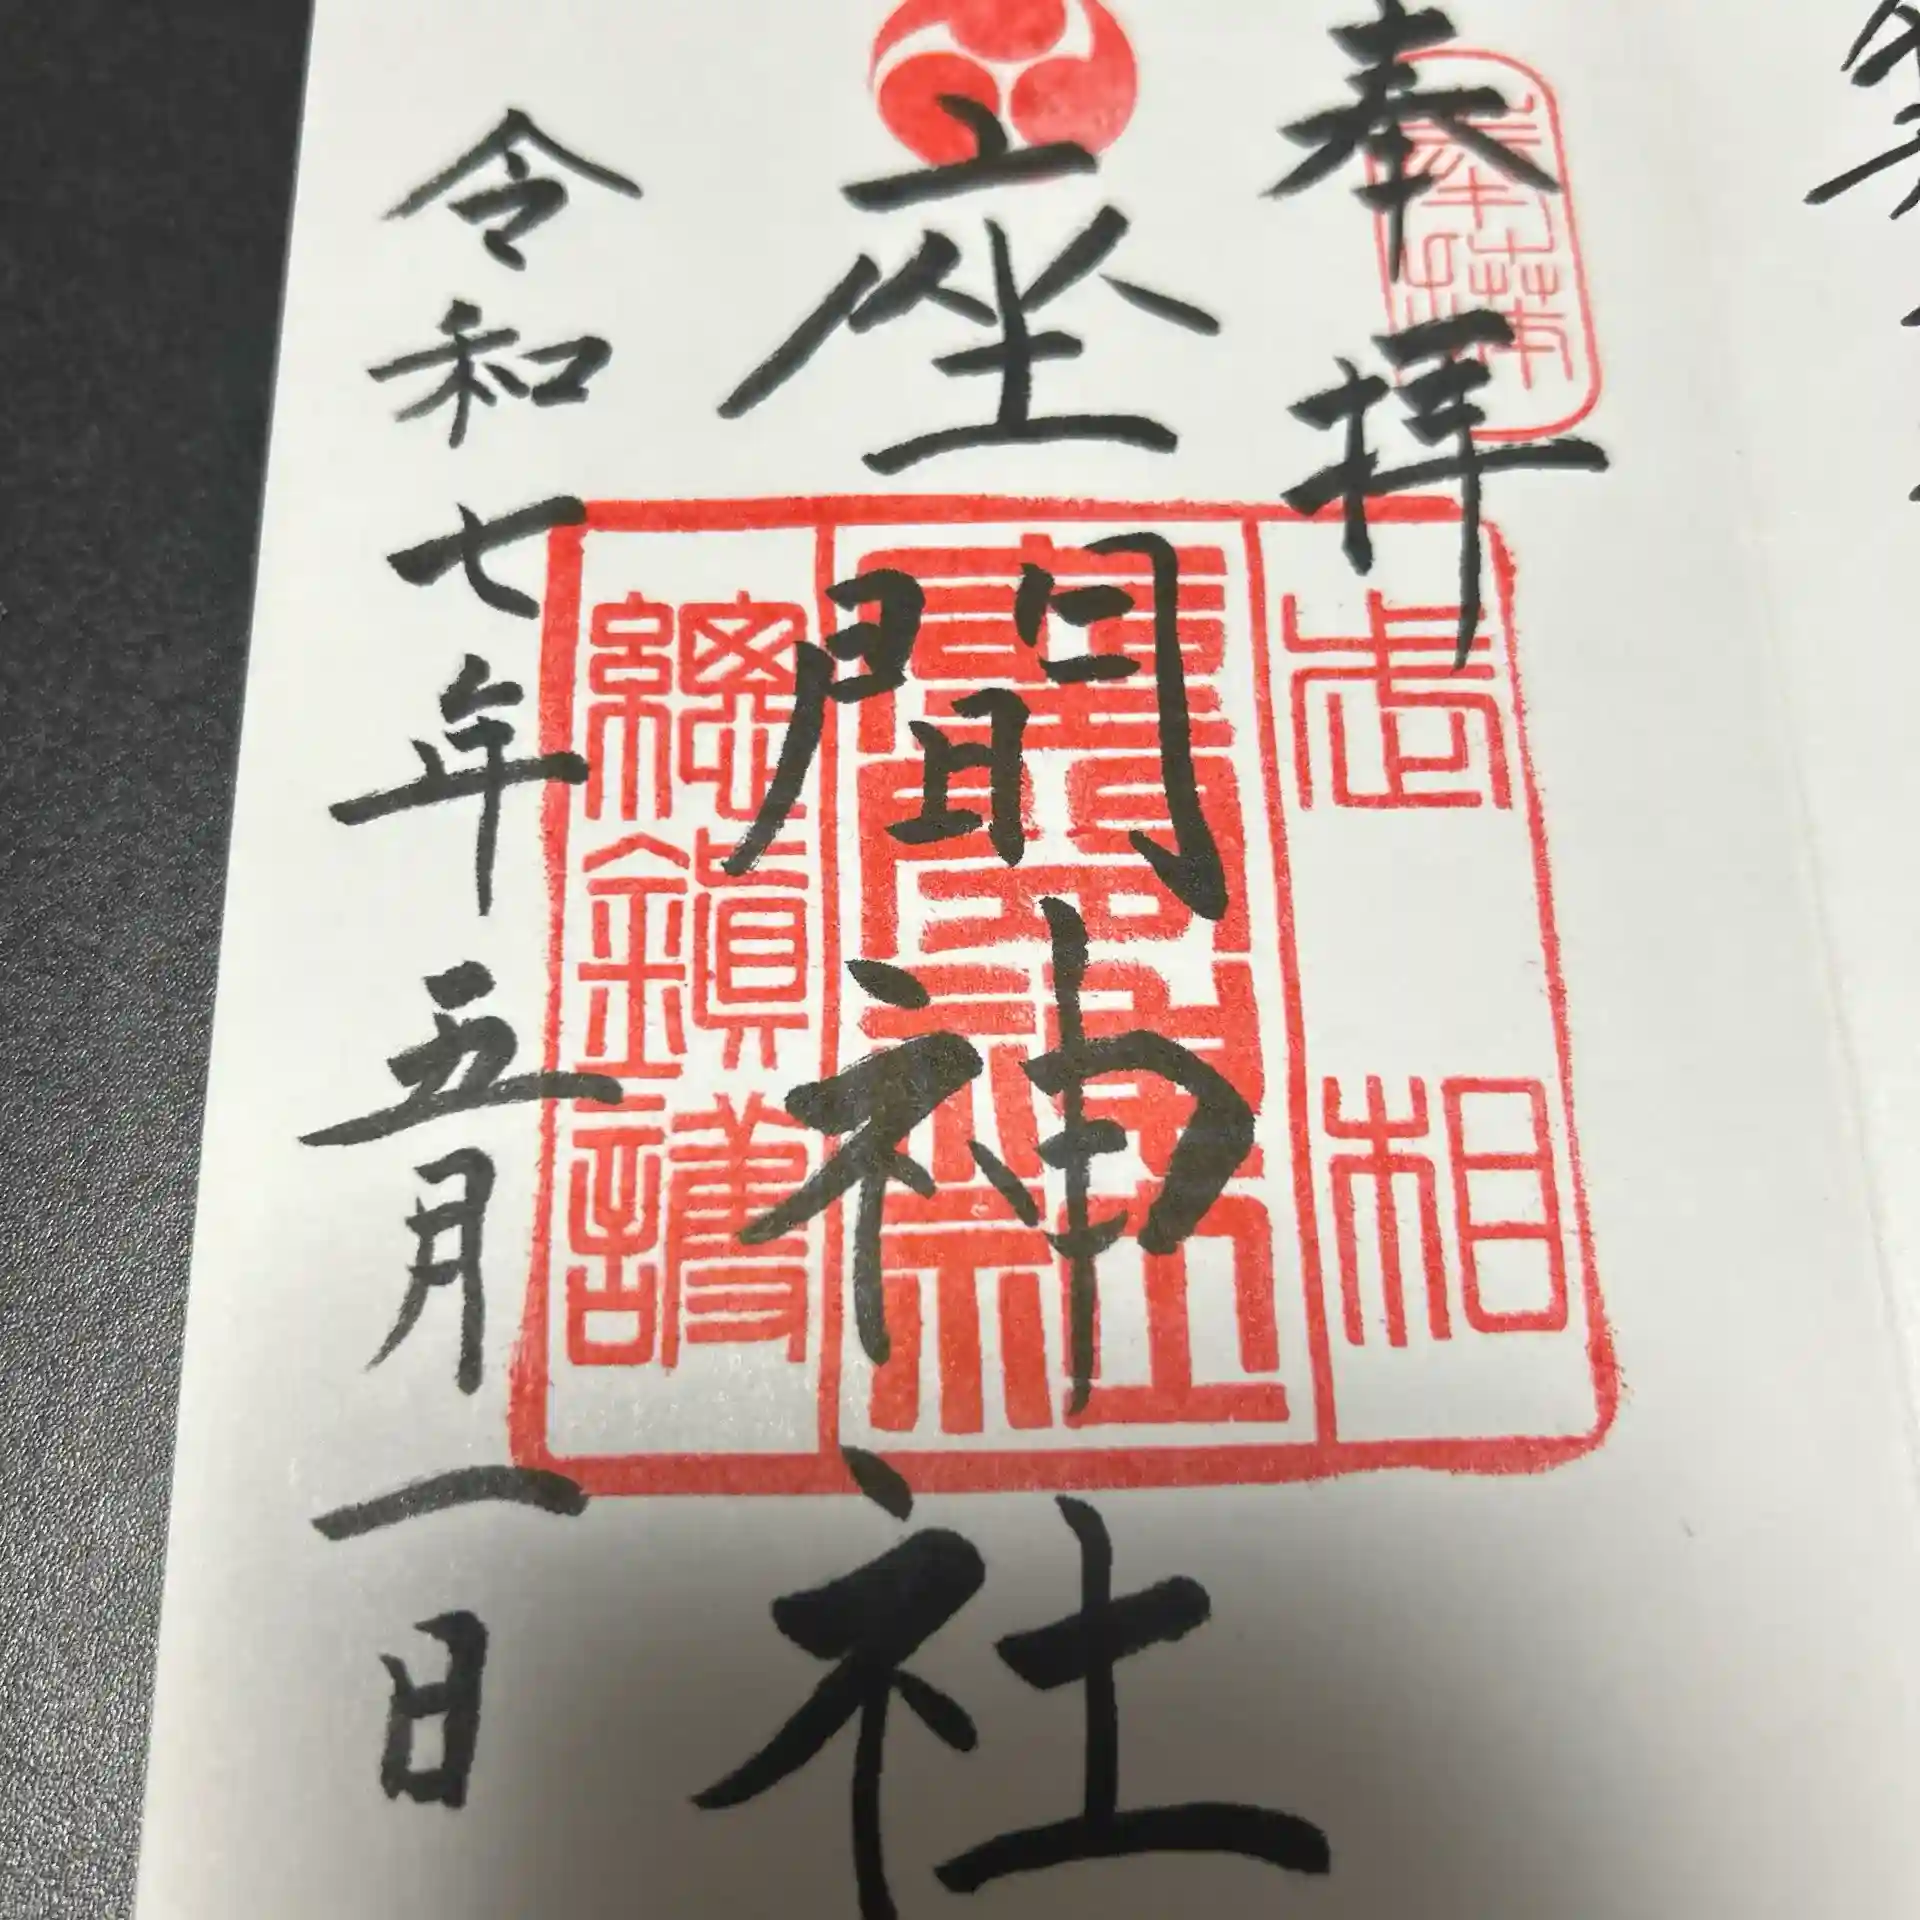 奉拝
奉拝
座間神社
相武
座間神社
總鎮護
令和七年五月一日